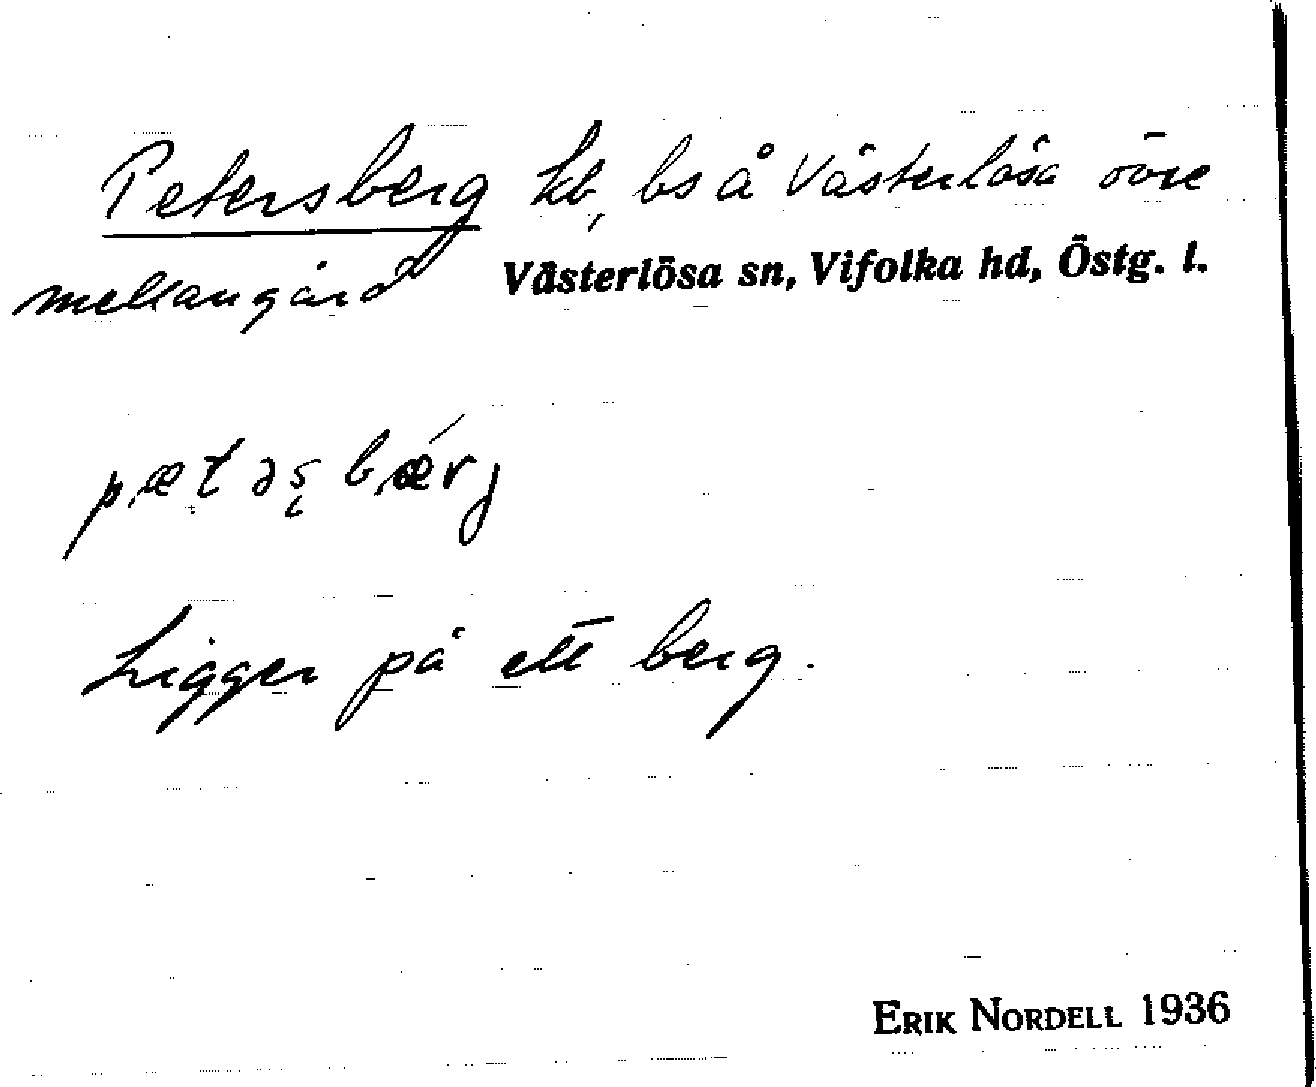 Petersberg lb, bs å Västerlösa övre
mellangård Västerlösa sn, Vifolka hd, Östg. l.
pætəʂbǽrj
Ligger på ett berg.
ERIK NORDELL 1936